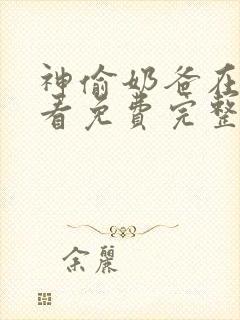 神偷奶爸在
看免費完整
余麗